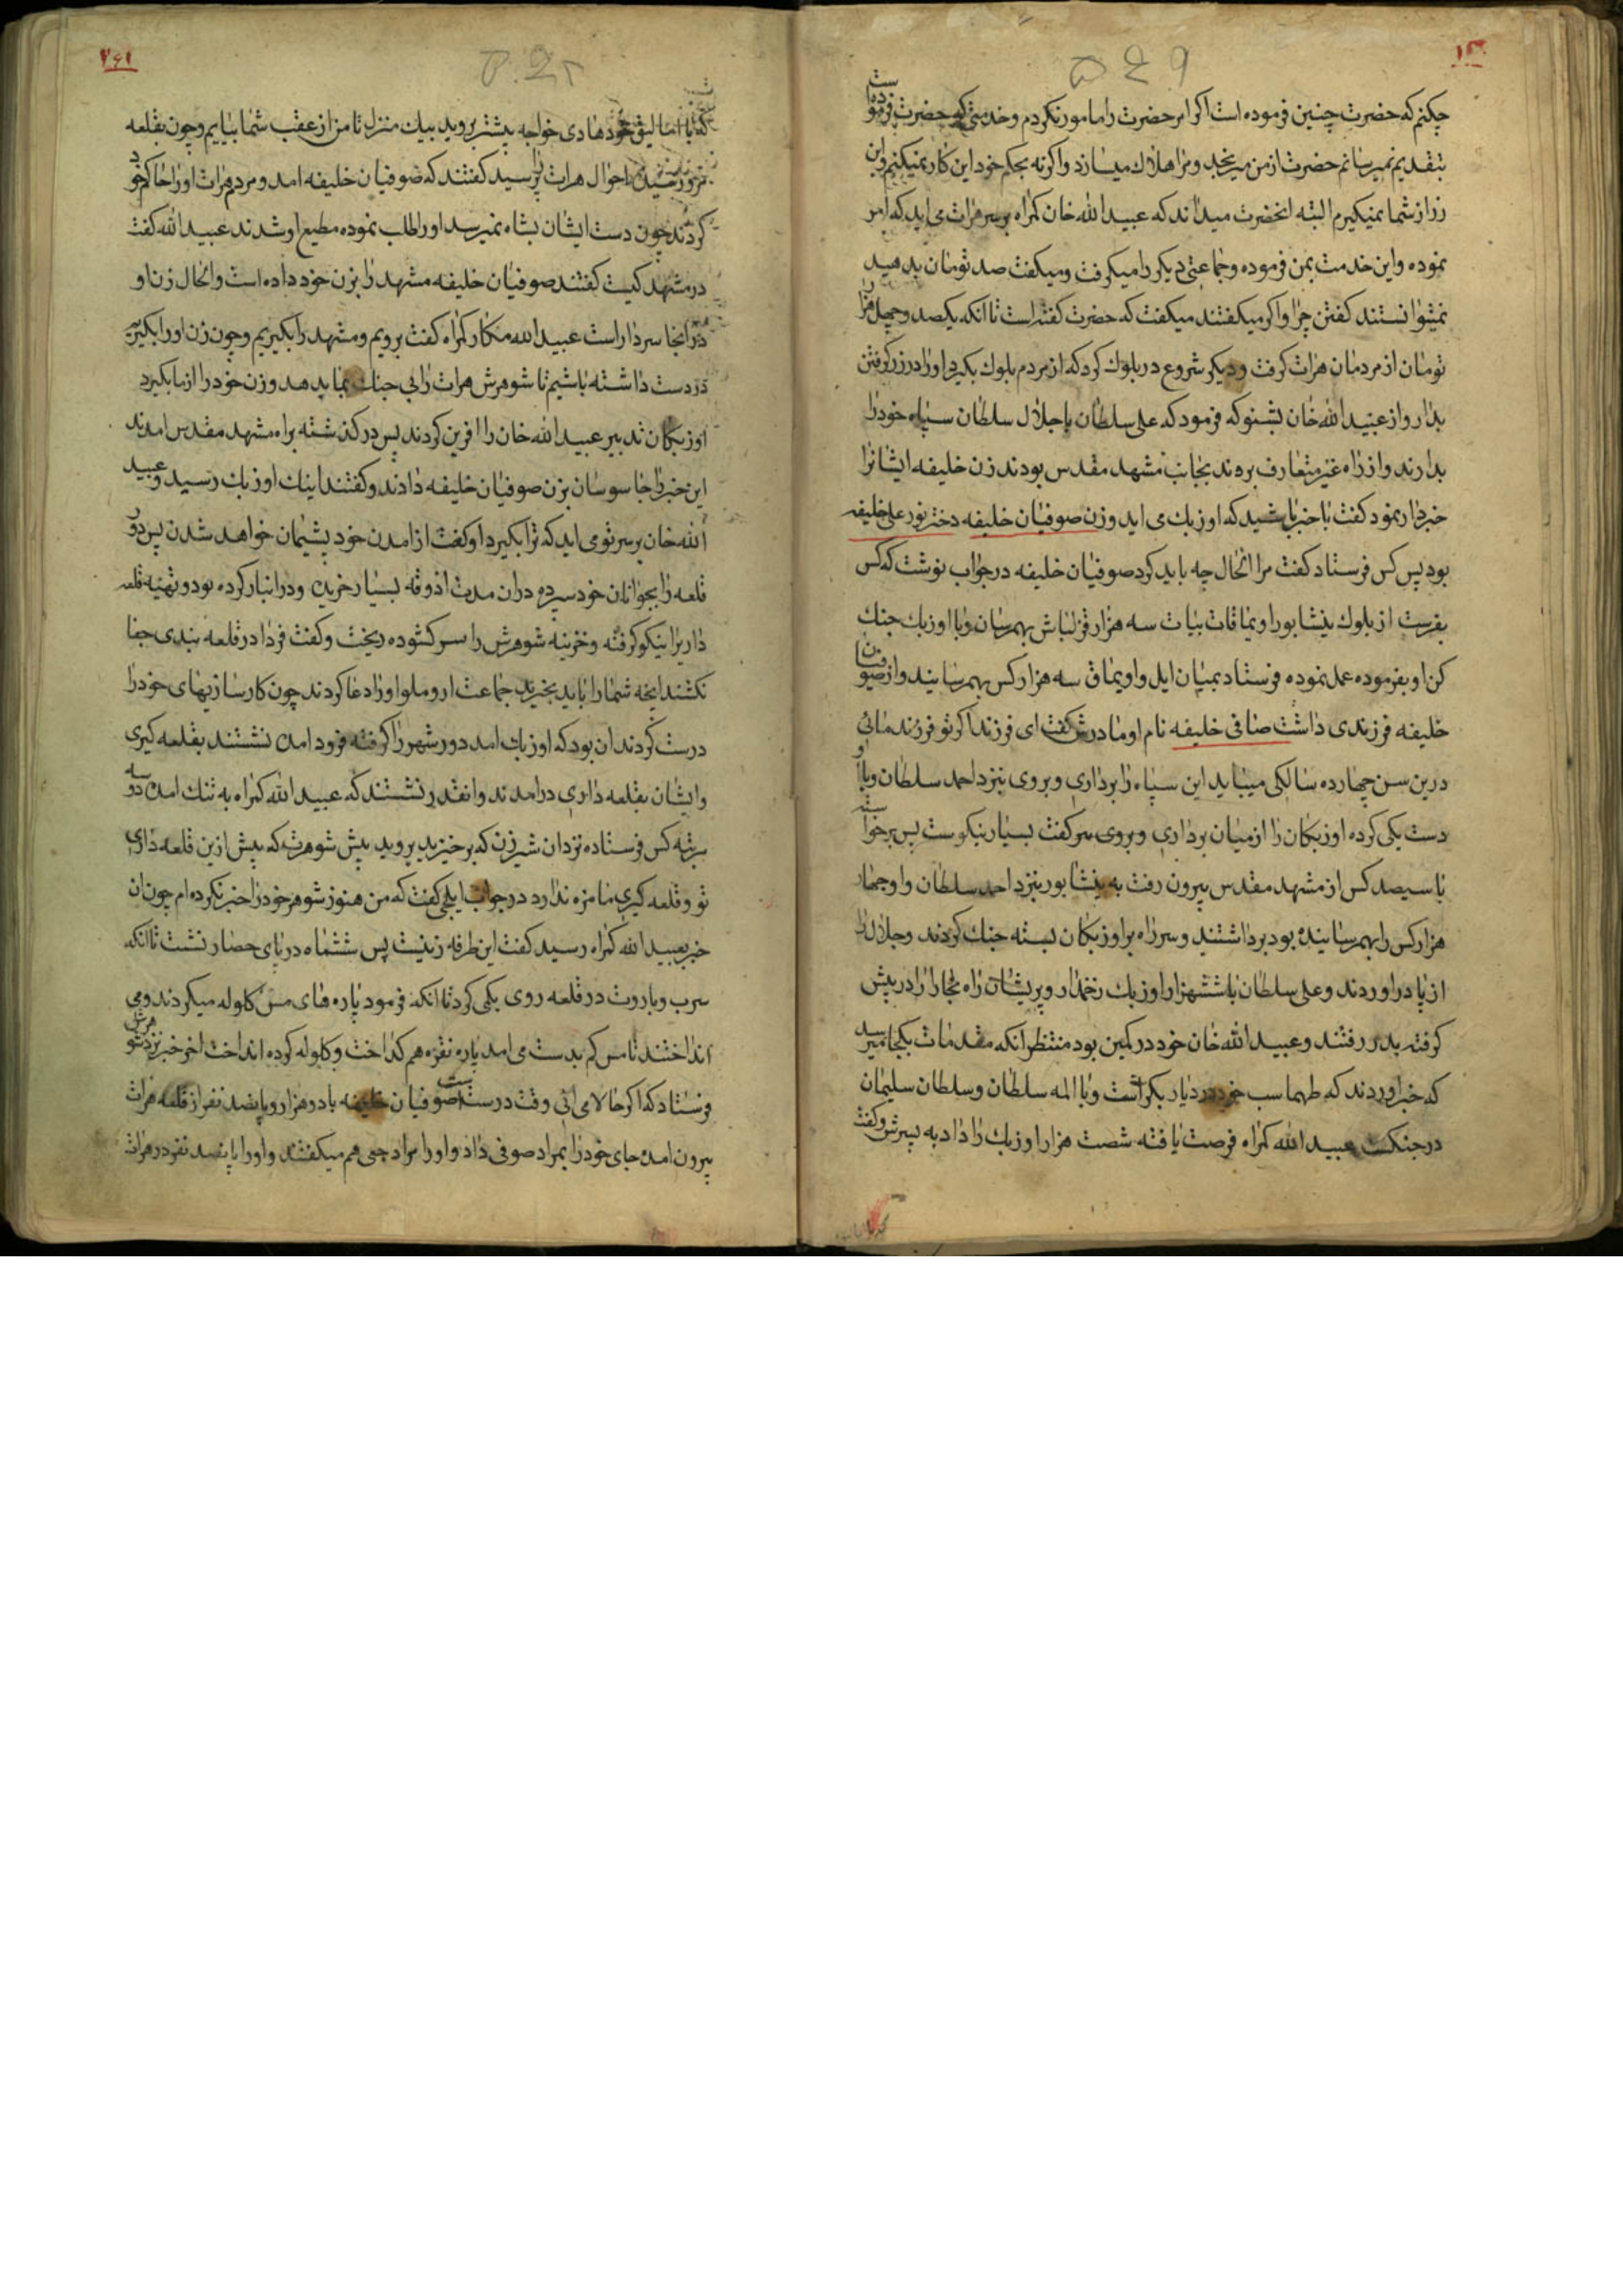 چکنم که حضرت چنین فرموده است اکر امر حضرت را مامور نکردم و خدمتی که حضرت فرموده است
بتقدیم نمیرسانم حضرت از من میرنجد و مرا هلاک میسازد واکرنه بحکم خود این کار نمیکنم واین
زر از شما نمیکیرم البته انحضرت میداند که عبید الله خان کمراه بر سر هرات می اید که امر
نموده واین خدمت بمن فرموده وجماعتی دیکر را میکرفت ومیکفت صد تومان بدهید
نمیتوانستند کفتن چرا واکر میکفتند میکفت که حضرت کفته است تا انکه یکصد وچهل هزار
تومان از مردمان هرات کرفت ودیکر شروع در بلوک کرد که از مردم بلوک بکیرد اورا در زر کرفتن
بدار واز عبید الله خان بشنو که فرمود که علی سلطان با جلال سلطان سپاه خود را
بدارند واز راه غیر متعارف بردند بجانب مشهد مقدس بودند زن خلیفه ایشانرا
خبردار نمود کفت با خبر باشید که اوزبک می اید وزن صوفیان خلیفه دختر نور علی خلیفه
بود پس کس فرستاد کفت مرا الحال چه باید کرد صوفیان خلیفه در جواب نوشت که کس
بفرست از بلوک نیشابور اویماقات بیات سه هزار قزلباش بهمرسان وبا اوزبک جنک
کن او بفرموده عمل نموده فرستاد بمیان ایل واویماق سه هزار کس بهمرسانیند واز صوفیان
خلیفه فرزندی داشت صافی خلیفه نام او مادرش کفت ای فرزند اکر تو فرزند مائی
درین سن چهارده سالکی میباید این سپاه را برداری وبروی نیزد احمد سلطان وبا او
دست یکی کرده اوزبکان را از میان برداری وبروی سر کفت بسیار نیکوست پس برخواسته
با سیصد کس از مشهد مقدس بیرون رفت به نیشابور بنزد احمد سلطان واو چهار
هزار کس را بهمرسانیده بود برداشتند وسر راه بر اوزبکان بسته جنک کردند وجلال را
از پا در اوردند وعلی سلطان با ششهزار اوزبک زخمدار وپریشان راه بخارا را در پیش
کرفته بدر رفتند وعبید الله خان خود در کمین بود منتظر انکه مقدمات بکجا میرسد
که خبر اوردند که طهماسب خود در دیار بکر است وبا المه سلطان وسلطان سلیمان
در جنکست عبید الله کمراه فرصت یافته شصت هزار اوزبک را داد به پسرش وکفت
که با اتالیق خود هادی خواجه پیشتر بروید بیک منزل تا من از عقب شما بیایم وچون بقلعه
احوال هرات را پرسید کفتند که صوفیان خلیفه امد ومردم هرات اورا حاکم خود
کردند چون دست ایشان بشاه نمیرسد اورا طلب نموده مطیع او شدند عبید الله کفت
در مشهد کیست کفتند صوفیان خلیفه مشهد را بزن خود داده است والحال زن او
در انجا سردار است عبید الله مکار کمراه کفت برویم ومشهد را بکیریم وچون زن اورا بکیریم
در دست داشته باشیم تا شوهرش هرات را بی جنک بما بدهد وزن خود را از ما بکیرد
اوزبکان تدبیر عبید الله خان را افرین کردند پس در کذشته براه مشهد مقدس امدند
این خبر را جاسوسان بزن صوفیان خلیفه دادند وکفتند اینک اوزبک رسید وعبید
الله خان بر سر تو می اید که ترا بکیرد او کفت از امدن خود پشیمان خواهد شدن پس دور
قلعه را بجوانان خود سپرده دران مدت اذوقه بسیار خریده ودر انبار کرده بود وتهیه قلعه
داری را نیکو کرفته وخزینه شوهرش را سر کشوده ریخت وکفت فردا در قلعه بندی جفا
نکشند انچه شما را باید بخرید جماعت اروملو اورا دعا کردند چون کارسازیهای خود را
درست کردند ان بود که اوزبک امد دور شهر را کرفته فرود امده نشستند بقلعه کیری
وایشان بقلعه داری در امدند وانقدر نشستند که عبید الله کمراه به تنک امده دو سه
مرتبه کس فرستاده نزد ان شیرزن که برخیزید بروید پیش شوهرت که پیش ازین قلعه داری
تو وقلعه کیری ما مزه ندارد در جواب ایلچی کفت که من هنوز شوهر خود را خبر نکرده ام چون ان
خبر بعبید الله کمراه رسید کفت این طرفه زنیست پس ششماه در پای حصار نشست تا انکه
سرب وباروت در قلعه روی بکمی کرد تا انکه فرمود پاره های مس کلوله میکردند ومی
انداختند تا مس کم بدست می امد پاره نقره هم کداخت وکلوله کرده انداخت اخر خبر نزد شوهرش
فرستاد که اکر حالا می ائی وقت درست است صوفیان خلیفه با دو هزار وپانصد نفر از قلعه هرات
بیرون امده جای خود را بمراد صوفی داد واورا مراد چی هم میکفتند واورا با پانصد نفر در هرات